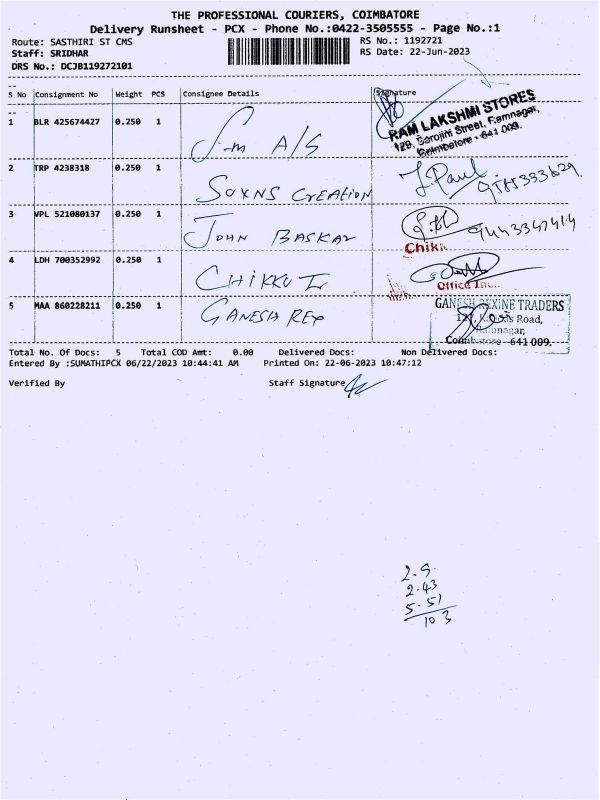 THE PROFESSIONAL COURIERS, COIMBATORE
Delivery Runsheet - PCX - Phone No.:0422-3505555 - Page No.:1
Route: SASTHIRI ST CMS
RS No.: 1192721
Staff: SRIDHAR
RS Date: 22-Jun-2023
DRS No.: DCJB119272101
S No Consignment No Weight PCS Consignee Details Signature
1 BLR 425674427 0.250 1
RAM LAKSHMI STORES
129, Sarojini Street, Ramnagar,
Coimbatore - 641 009.
2 TRP 4238318 0.250 1 CREATION J. Paul
3 VPL 521080137 0.250 1 JOHN BASKAR
4 LDH 700352992 0.250 1 CHIKKU
Office
5 MAA 860228211 0.250 1 GANESH REX
GANESH REXINE TRADERS
Road,
Ramnagar,
Coimbatore - 641 009.
Total No. Of Docs: 5 Total COD Amt: 0.00 Delivered Docs: Non Delivered Docs:
Entered By :SUMATHIPCX 06/22/2023 10:44:41 AM Printed On: 22-06-2023 10:47:12
Verified By Staff Signature
2.43
5.51
103